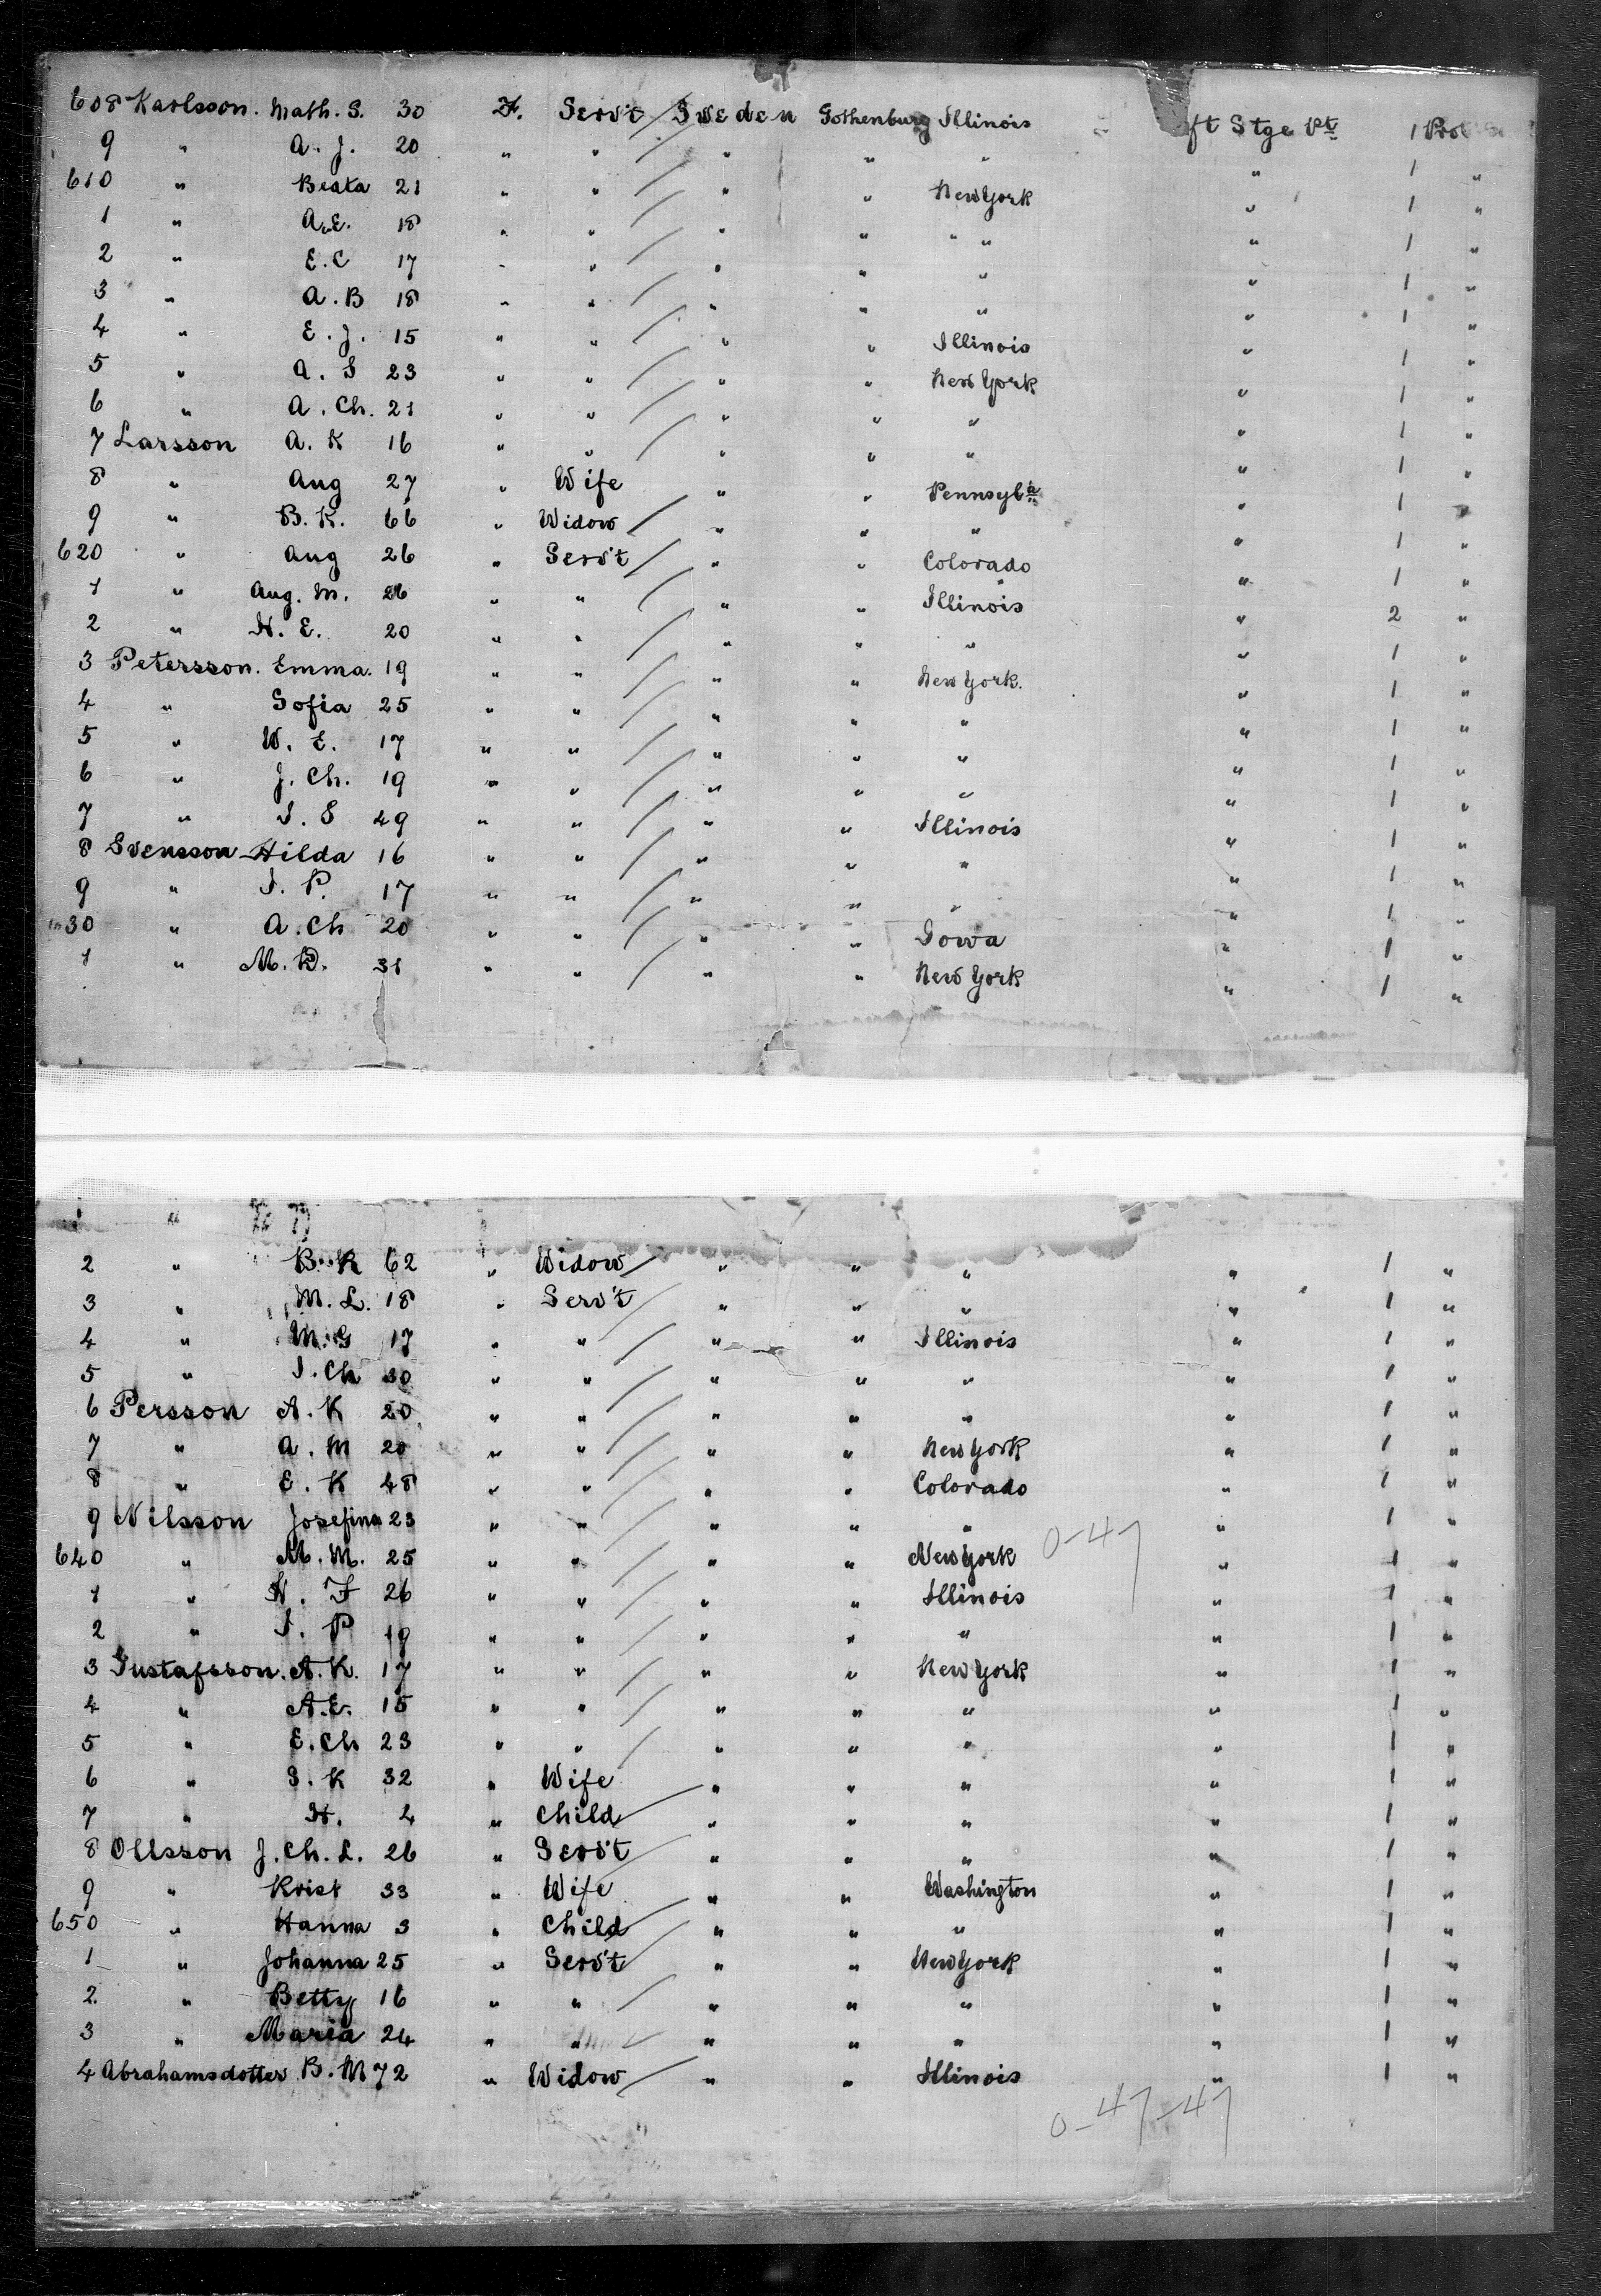 608 Karlsson. Math. S. 30 F. Serv't / Sweden Gothenburg Illinois " ft Stge Pt 1 Prot
9 " A. J. 20 " " / " " " " 1 "
610 " Beata 21 " " / " " New York " 1 "
1 " A. E. 18 " " / " " " " " 1 "
2 " E. C 17 " " / " " " " 1 "
3 " A. B 18 " " / " " " " 1 "
4 " E. J. 15 " " / " " Illinois " 1 "
5 " A. S 23 " " / " " New York " 1 "
6 " A. Ch. 21 " " / " " " " 1 "
7 Larsson A. K 16 " " / " " " " 1 "
8 " Aug 27 " Wife " " Pennsylva " 1 "
9 " B. K. 66 " Widow / " " " " 1 "
620 " Aug 26 " Serv't / " " Colorado " 1 "
1 " Aug. M. 26 " " / " " Illinois " 2 "
2 " H. E. 20 " " / " " " " 1 "
3 Petersson. Emma. 19 " " / " " New York. " 1 "
4 " Sofia 25 " " / " " " " 1 "
5 " W. E. 17 " " / " " " " 1 "
6 " J. Ch. 19 " " / " " " " 1 "
7 " I. S 49 " " / " " Illinois " 1 "
8 Svensson Hilda 16 " " / " " " " 1 "
9 " I. P. 17 " " / " " " " 1 "
630 " A. Ch 20 " " / " " Iowa " 1 "
1 " M. D. 31 " " / " " New York " 1 "
"
2 " B. K 62 " Widow / " " " " 1 "
3 " M. L. 18 " Serv't / " " " " 1 "
4 " M. G 17 " " / " " Illinois " 1 "
5 " I. Ch 30 " " / " " " " 1 "
6 Persson A. K 20 " " / " " " " 1 "
7 " A. M 20 " " / " " New York " 1 "
8 " E. K 48 " " / " " Colorado " 1 "
9 Nilsson Josefina 23 " " / " " " " 1 "
640 " M. M. 25 " " / " " New York 0-47 " 1 "
1 " H. F 26 " " / " " Illinois " 1 "
2 " I. P 19 " " / " " " " 1 "
3 Gustafsson. A. K. 17 " " / " " New York " 1 "
4 " A. E. 15 " " / " " " " 1 "
5 " E. Ch 23 " " / " " " " 1 "
6 " S. K 32 " Wife " " " " 1 "
7 " H. 2 " Child / " " " " 1 "
8 Ollsson J. Ch. L. 26 " Serv't / " " " " 1 "
9 " Krist 33 " Wife " " Washington " 1 "
650 " Hanna 3 " Child / " " " " 1 "
1 " Johanna 25 " Serv't / " " New York " 1 "
2. " Betty 16 " " / " " " " 1 "
3 " Maria 24 " " / " " " " 1 "
4 Abrahamsdotter B. M 72 " Widow / " " Illinois " 1 "
0-47-47